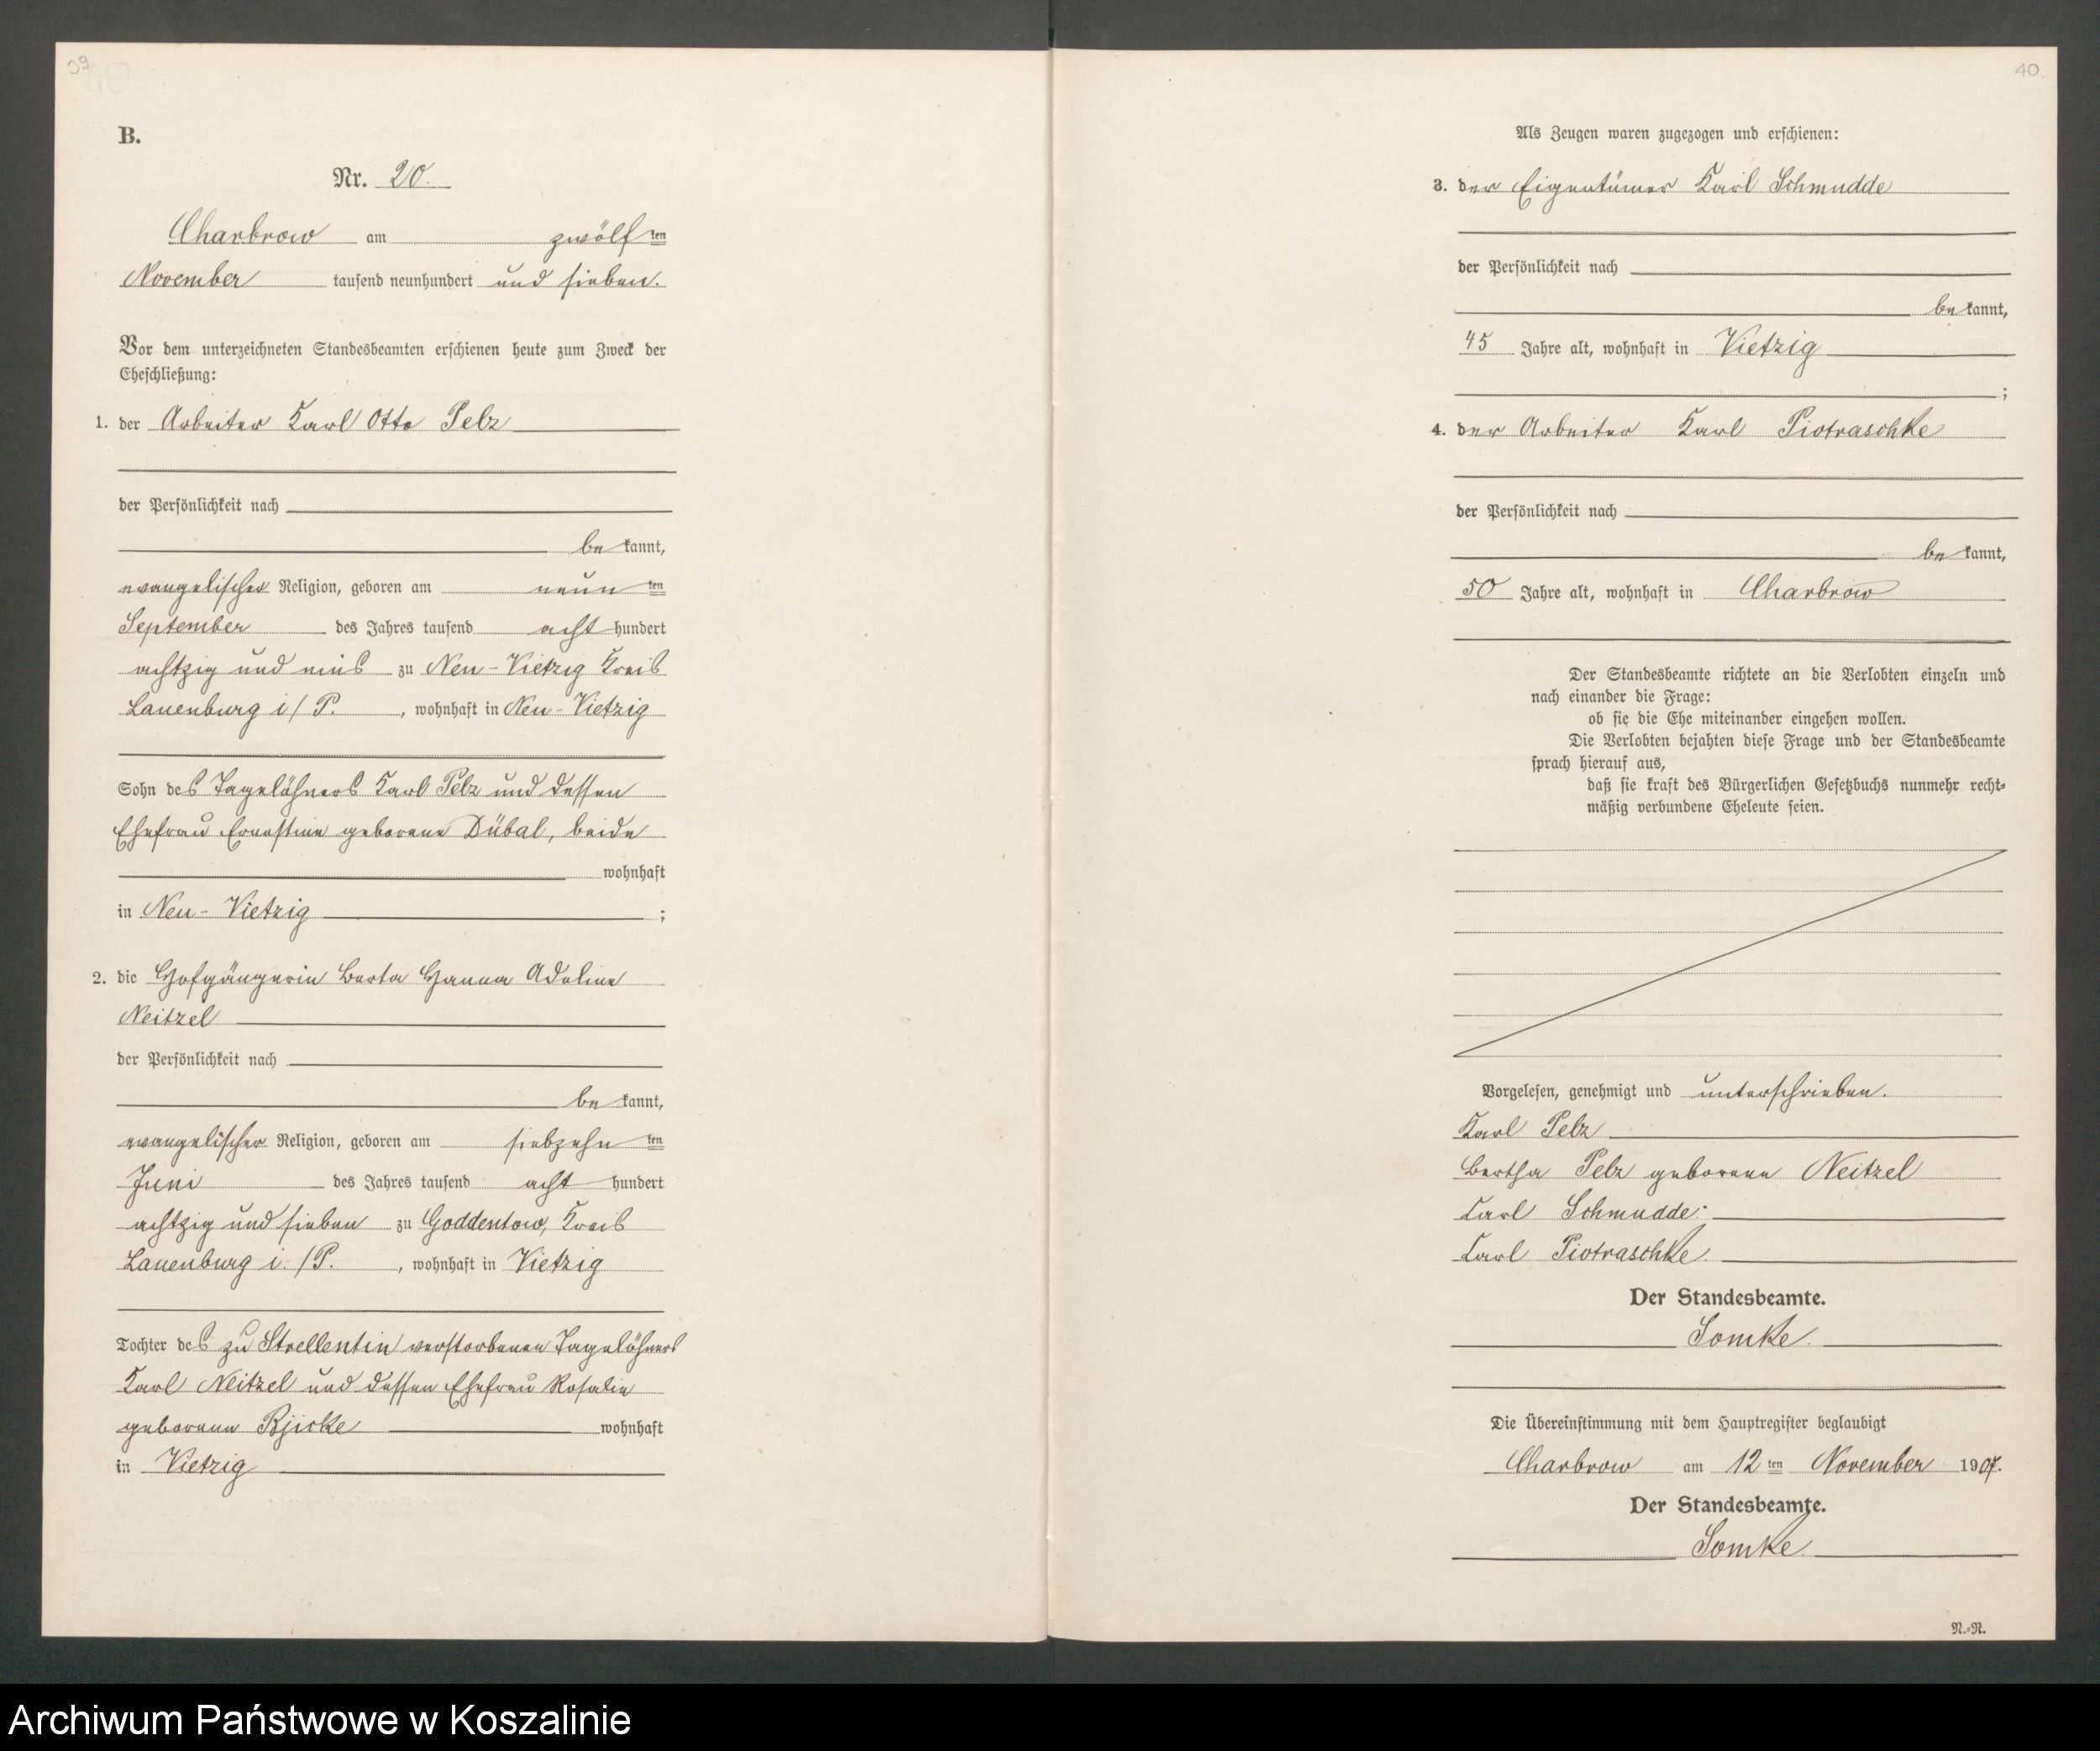 39
40
B.
Nr. 20.
Charbrow am zwölften
November tausend neunhundert und sieben.
Vor dem unterzeichneten Standesbeamten erschienen heute zum Zweck der
Eheschließung:
1. der Arbeiter Karl Otto Pelz
der Persönlichkeit nach
bekannt,
evangelischer Religion, geboren am neunten
September des Jahres tausend achthundert
achtzig und eins zu Neu-Vietzig Kreis
Lauenburg i/P., wohnhaft in Neu-Vietzig
Sohn des Tagelöhners Karl Pelz und dessen
Ehefrau Ernestine geborene Dübal, beide
wohnhaft
in Neu-Vietzig;
2. die Hofgängerin Berta Hanna Adeline
Neitzel
der Persönlichkeit nach
bekannt,
evangelischer Religion, geboren am siebzehnten
Juni des Jahres tausend achthundert
achtzig und sieben zu Goddentow, Kreis
Lauenburg i./P., wohnhaft in Vietzig
Tochter des zu Strellentin verstorbenen Tagelöhners
Karl Neitzel und dessen Ehefrau Rosalie
geborene Bjicke wohnhaft
in Vietzig
40
Als Zeugen waren zugezogen und erschienen:
3. der Eigentümer Karl Schmudde
der Persönlichkeit nach
bekannt,
45 Jahre alt, wohnhaft in Vietzig
;
4. der Arbeiter Karl Piotraschke
der Persönlichkeit nach
bekannt,
50 Jahre alt, wohnhaft in Charbrow
Der Standesbeamte richtete an die Verlobten einzeln und
nach einander die Frage:
ob sie die Ehe miteinander eingehen wollen.
Die Verlobten bejahten diese Frage und der Standesbeamte
sprach hierauf aus,
daß sie kraft des Bürgerlichen Gesetzbuchs nunmehr recht-
mäßig verbundene Eheleute seien.
Vorgelesen, genehmigt und unterschrieben.
Karl Pelz
Bertha Pelz geborene Neitzel
Carl Schmudde.
Carl Piotraschke.
Der Standesbeamte.
Somke.
Die Übereinstimmung mit dem Hauptregister beglaubigt
Charbrow am 12ten November 1907.
Der Standesbeamte.
Somke.
N.-N.
Archiwum Państwowe w Koszalinie